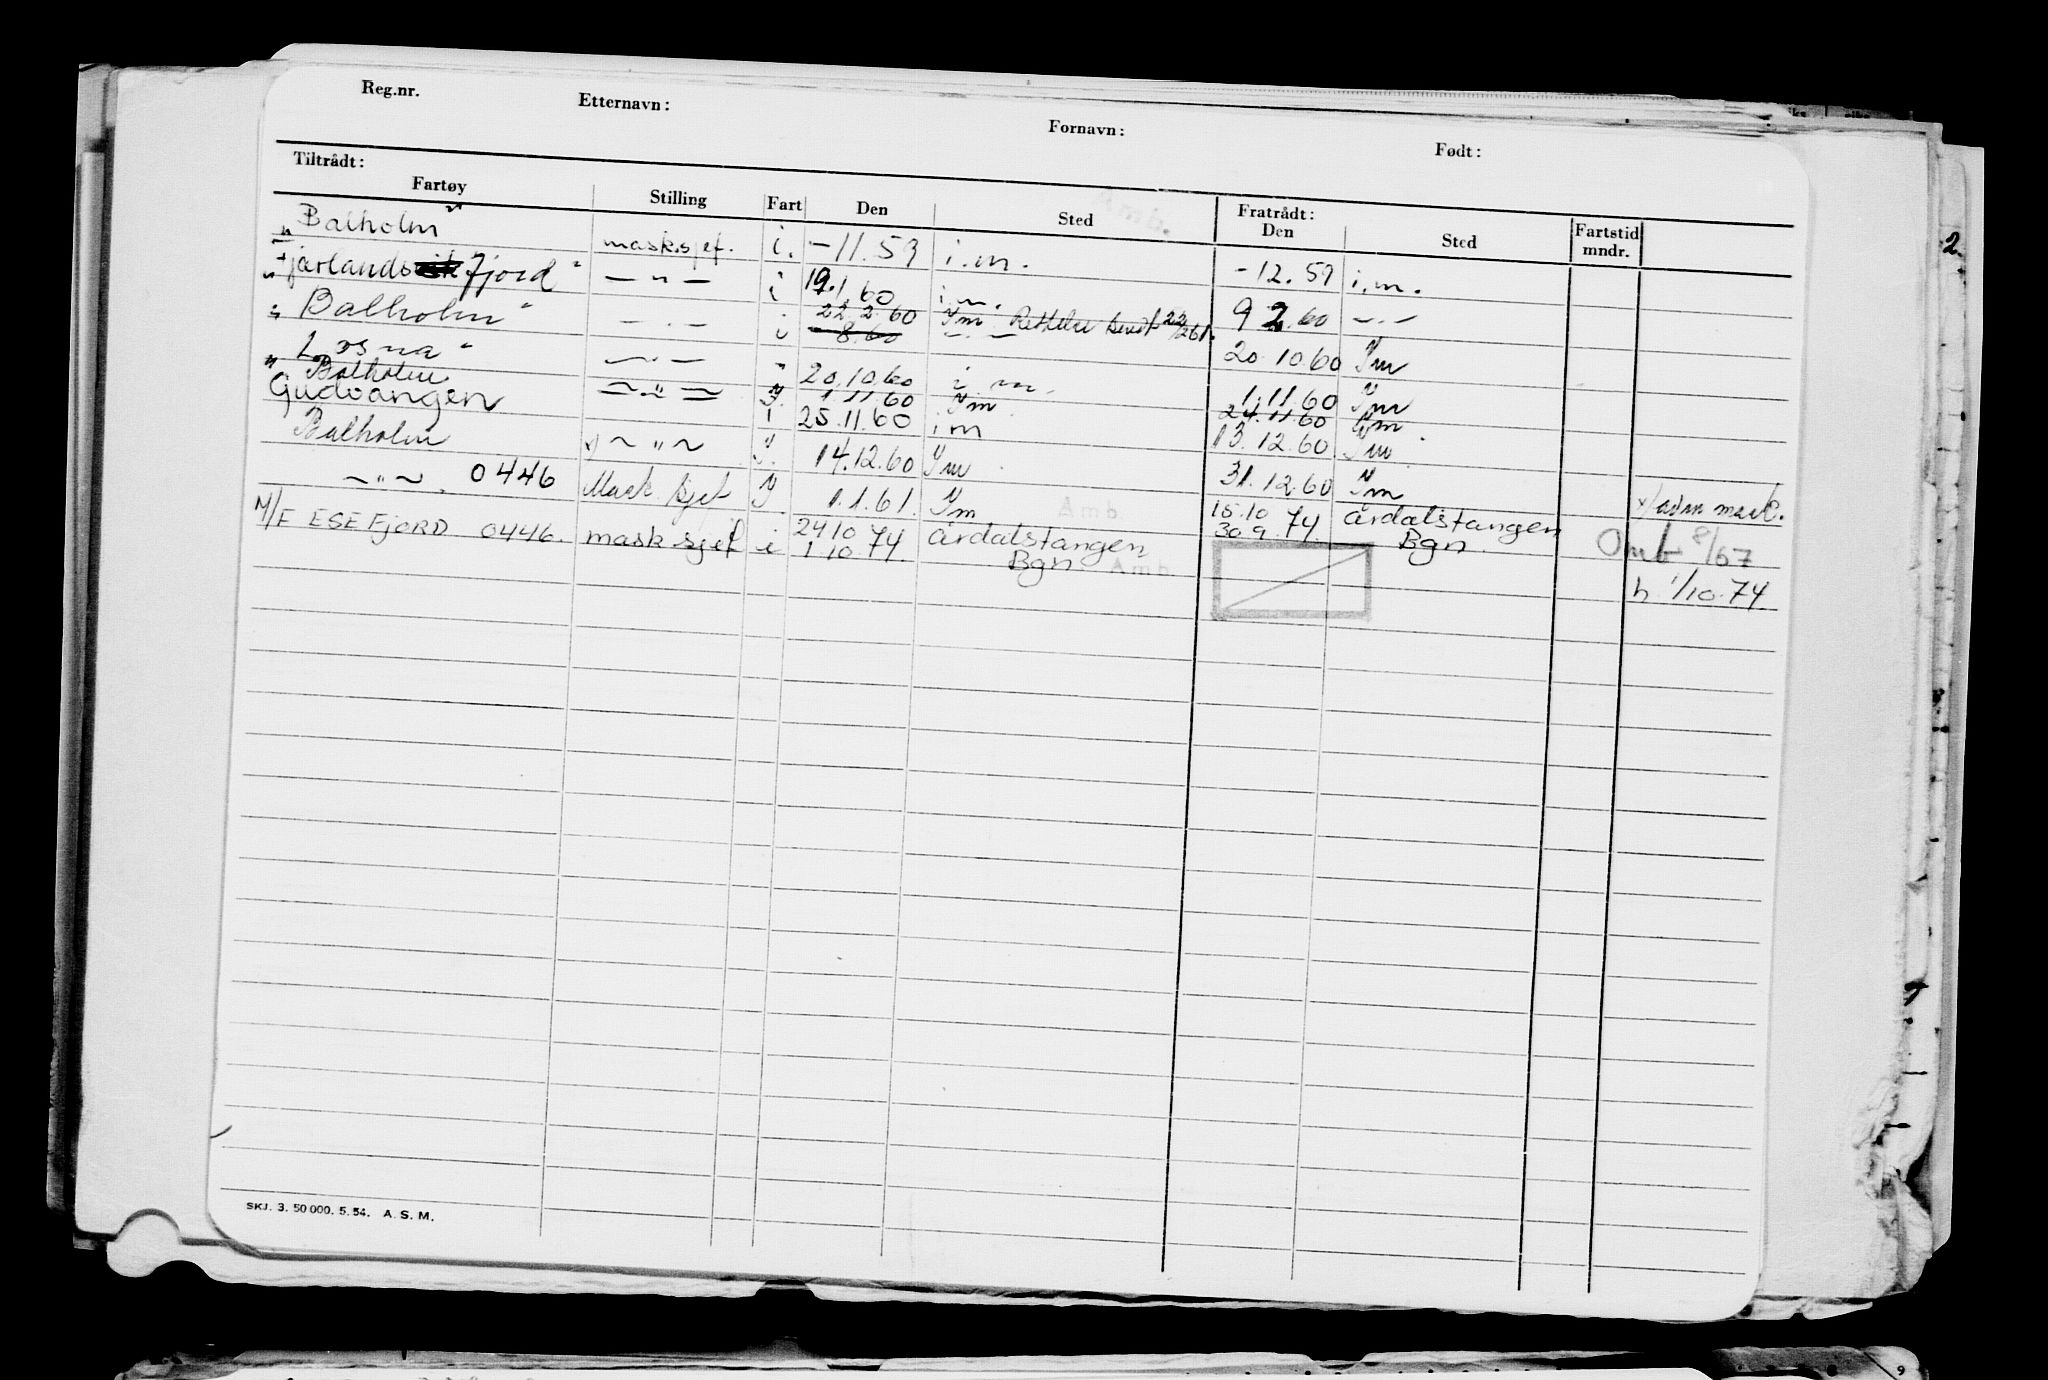 Reg.nr. Etternavn: Fornavn: Født:
Tiltrådt: Fratrådt:
Fartøy Stilling Fart Den Sted Den Sted Fartstid mndr.
"Balholm" mask.sjef. i. -11.59 i.m. -12.59 i.m.
"Fjærlandsfjord" — " — i 19.1.60 i.m. 9 2.60 — " —
"Balholm" — " — i 22.2.60 Im Rettelse sendt 22/2 61. 20.10.60 Im
8.60 — " —
"Losna" — " — 20.10.60 i m. 1.11.60 Im
"Balholm — " — 1.11.60 Im 24.11.60 Im
Gudvangen — " — i 25.11.60 i m 13.12.60 Im
Balholm x) — " — I. 14.12.60 Im 31.12.60 Im
— " — . 0446 Mask sjef I 1.1.61. Im Amb 15.10 74 Årdalstangen x/ adm mask.
M/F ESEFJORD 0446. mask sjef i 24 10 74 Årdalstangen 30.9.74. Bgn. Omb 8/67
1 10 74 Bgn. Amb
h 1/10.74
SKJ. 3. 50 000. 5. 54. A. S. M.